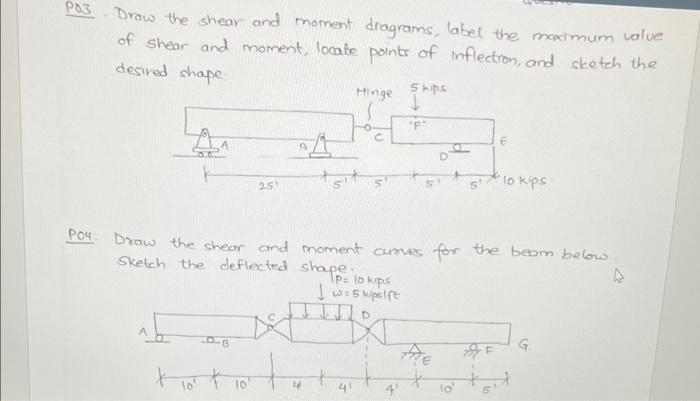 P03. Draw the shear and moment diagrams, label the maximum value
of shear and moment, locate points of inflection, and sketch the
desired shape.
Hinge 5 kips
"F"
A B C D E
25' 5' 5' 5' 5' 10 kips
P04. Draw the shear and moment curves for the beam below.
Sketch the deflected shape.
P= 10 kips
w=5 kips/ft
A B C D E F G
10' 10' 4' 4' 4' 10' 5'